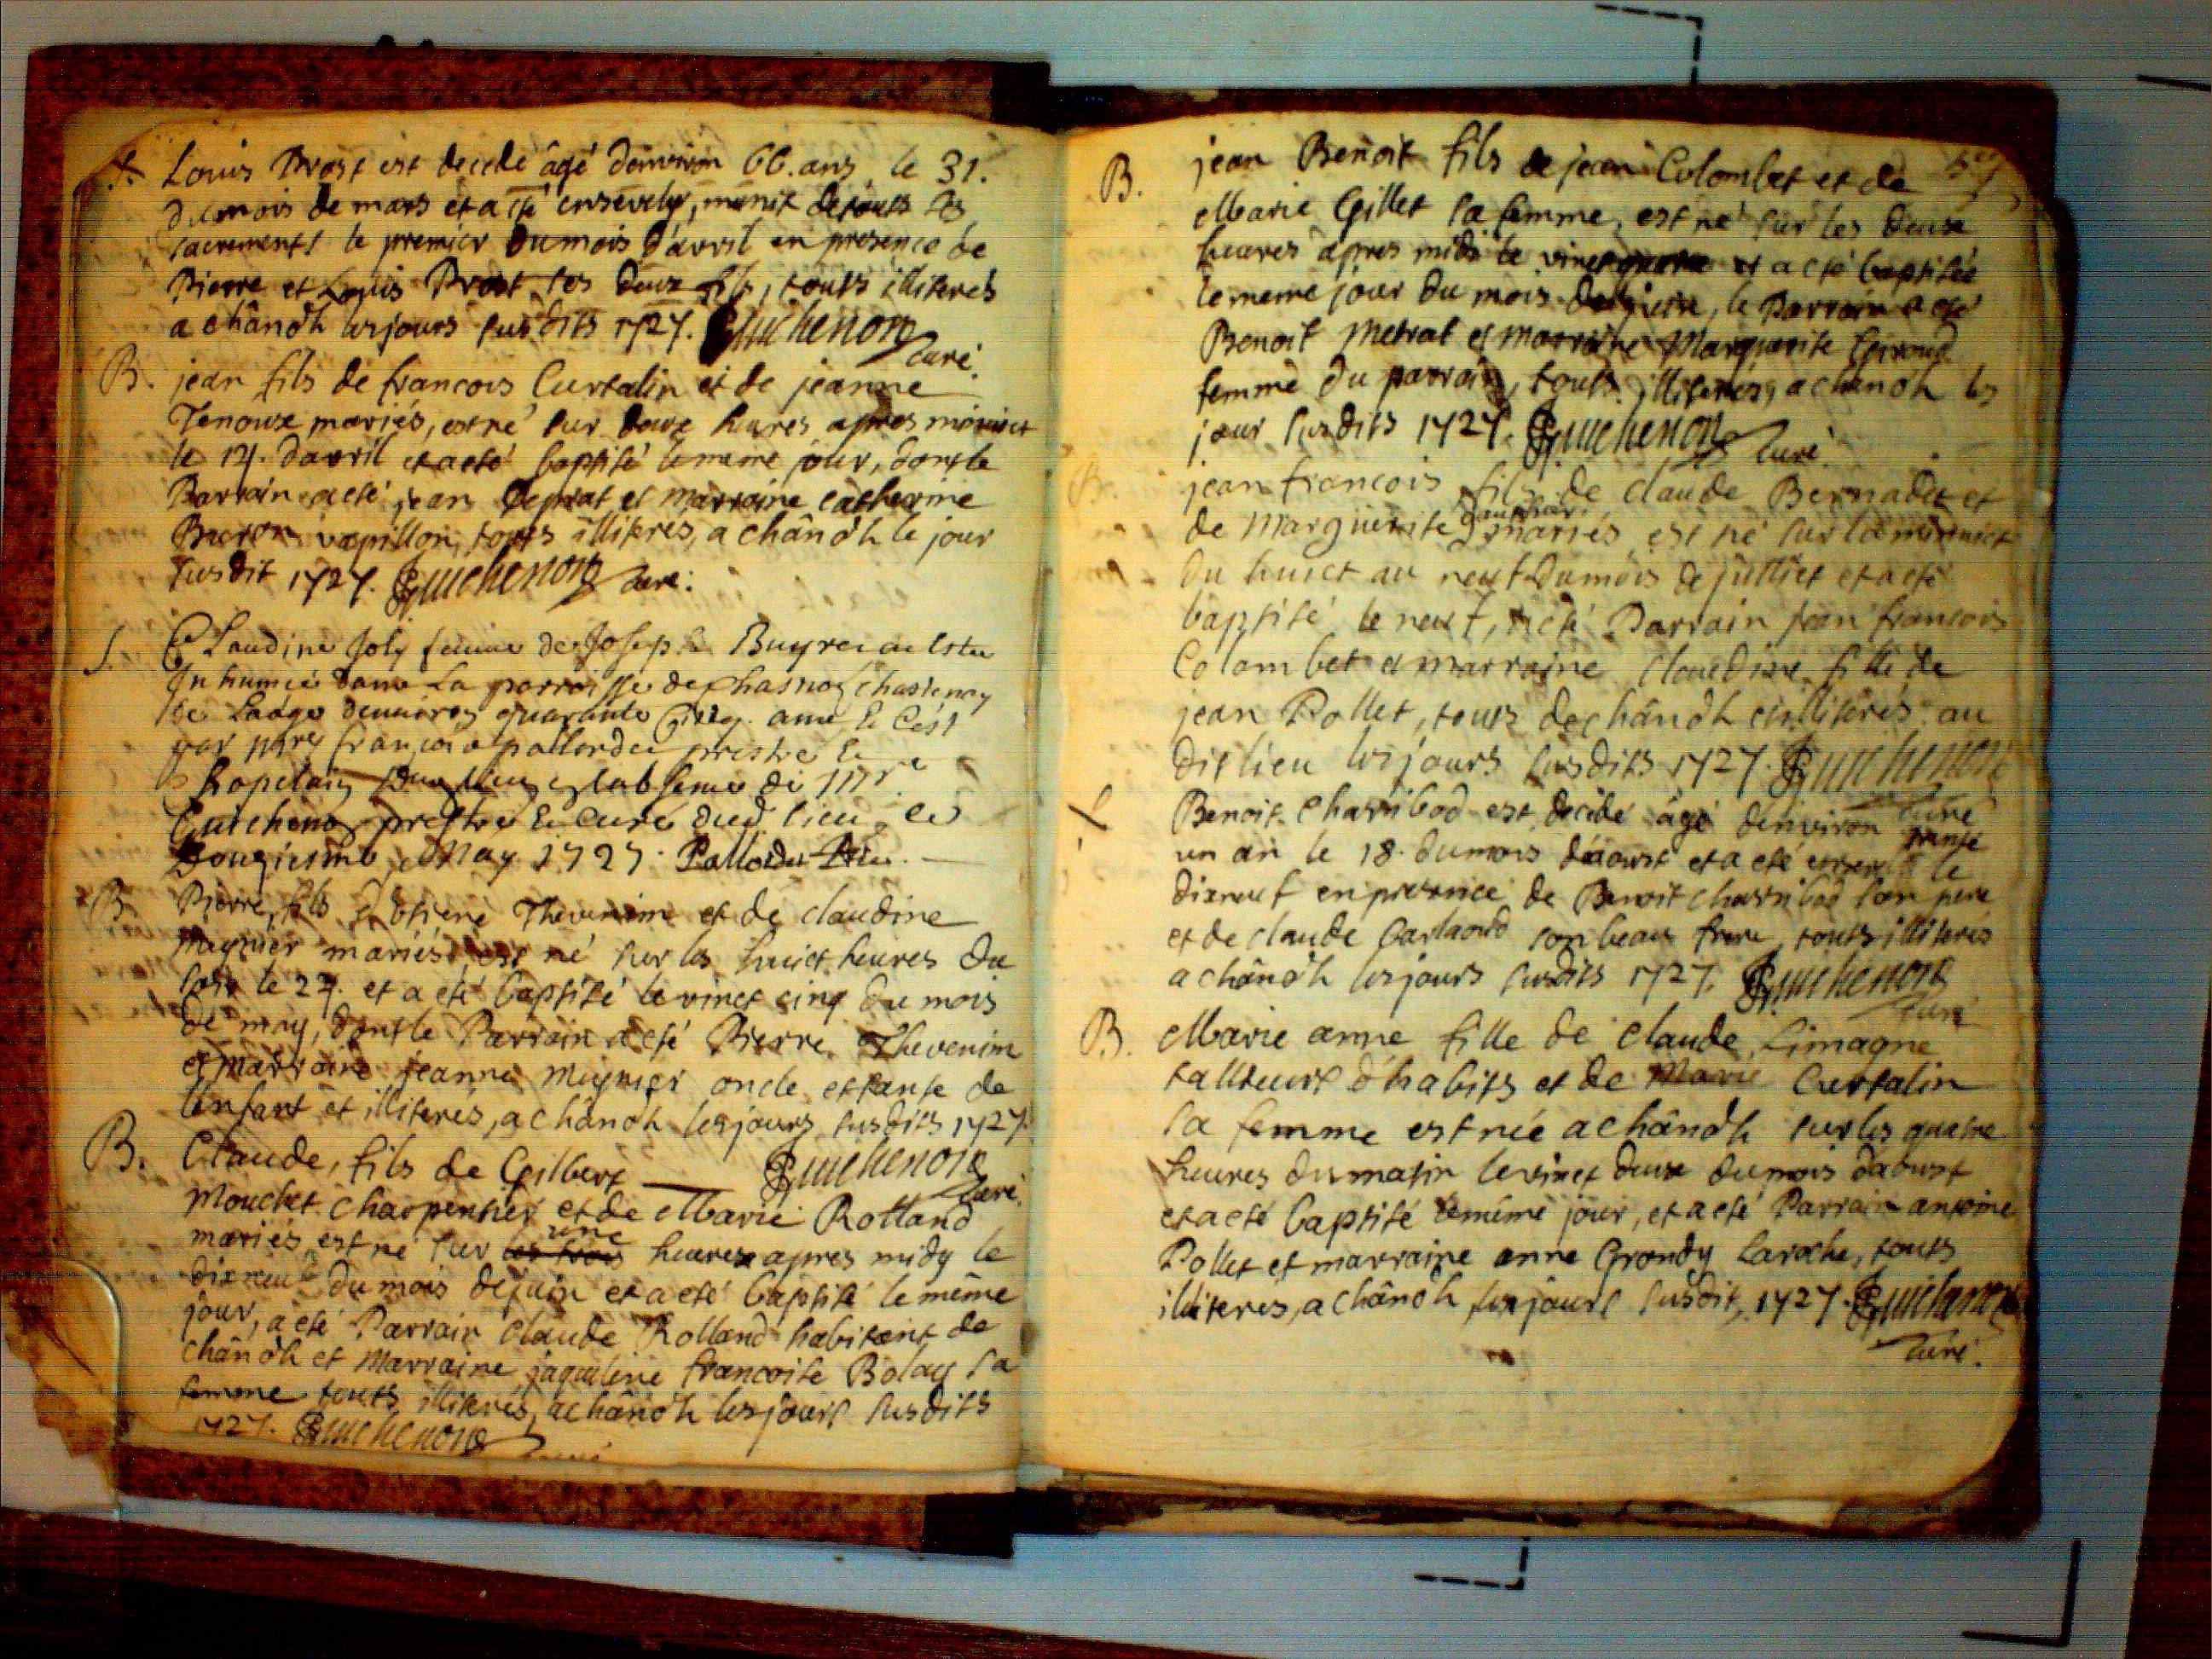 S. Louis Brost est decedé âgé denviron 66. ans le 31.
du mois de mars et a eté ensevely, munit de touts les
sacrements le premier du mois d'avril en presence de
Pierre et Louis Brost ses deux fils, touts illiterés
a chânoh les jours susdits 1727. Guichenon
curé.
B. jean fils de francois Curtalin et de jeanne
Tenouxe mariés, est né sur douze heures apres minuict
le d'avril et a eté baptisé le meme jour, dont le
Parrain a eté jean et marraine catherine
vapillon, touts illiteres, a chânoh le jour
susdit 1727. Guichenon curé.
S. Claudine Joly femme de Joseph Buyret a estee
Inhumée dans La parroisse de Chasnoz
de Laage denviron quarante Cinq. ans, Et Cest
par mre françois pallordet prestre Et
en labsence de mre
Guichenon prestre Et Curé dud. lieu, le
Dougiesme May 1727. Pallordet Ptre.
B. Pierre, fils d'Etiene Thevenim et de claudine
Mugnier mariés est né sur les huict heures du
soir le 24. et a eté baptisé le vinct cinq du mois
de may, dont le Parrain a eté Pierre Thevenim
et marraine jeanne mugnier oncle et tante de
lenfant et illiterés, a chânoh les jours susdits 1727
B. Claude, fils de Gilbert Guichenon
curé.
Mouchet charpentier et de Marie Rolland
mariés est né sur les trois une heures apres midy le
dixneuf du mois de juin et a eté baptisé le même
jour, a eté Parrain Claude Rolland habitant de
chânoh et Marraine jaqueline francoise Bolay sa
femme touts illiterés, a chânoh les jours susdits
1727. Guichenon
curé
B. jean Benoit fils de jean Colombet et de
Marie Gillet sa femme, est né sur les deuse
heures apres midi le vinct quatre et a eté baptisé
le meme jour du mois de, le Parrain a eté
Benoit Metrat et marraine Marguerite Giroud
femme du parrain, touts illiterés, a chânoh les
jour susdits 1727. Guichenon
curé.
B. jean francois fils de claude Bernadet et
de Marguerite gauthier mariés est né sur la minuict
du huict au neuf du mois de juillet et a eté
baptisé le neuf, a eté Parrain jean francois
Colombet et marraine claudine fille de
jean Pollet, touts de chânoh et illiterés au
dit lieu les jours susdits 1727. Guichenon
curé
S. Benoit charribod est decedé âgé denviron trante
un an le 18. du mois d'aoust et a eté le
dixneuf en presence de Benoit charribod son pere
et de claude Carlaond son beau frere, touts illiterés
a chânoh les jours susdits 1727. Guichenon
curé
B. Marie anne fille de claude Limagne
tallieurs d'habits et de Marie Curtalin
sa femme est née a chânoh sur les quatre
heures du matin le vinct deux du mois d'aoust
et a eté baptisé le même jour, et a eté Parrain antoine
Pollet et marraine anne Grondy Laroche, touts
illiteres, a chânoh les jours susdit, 1727. Guichenon
curé.